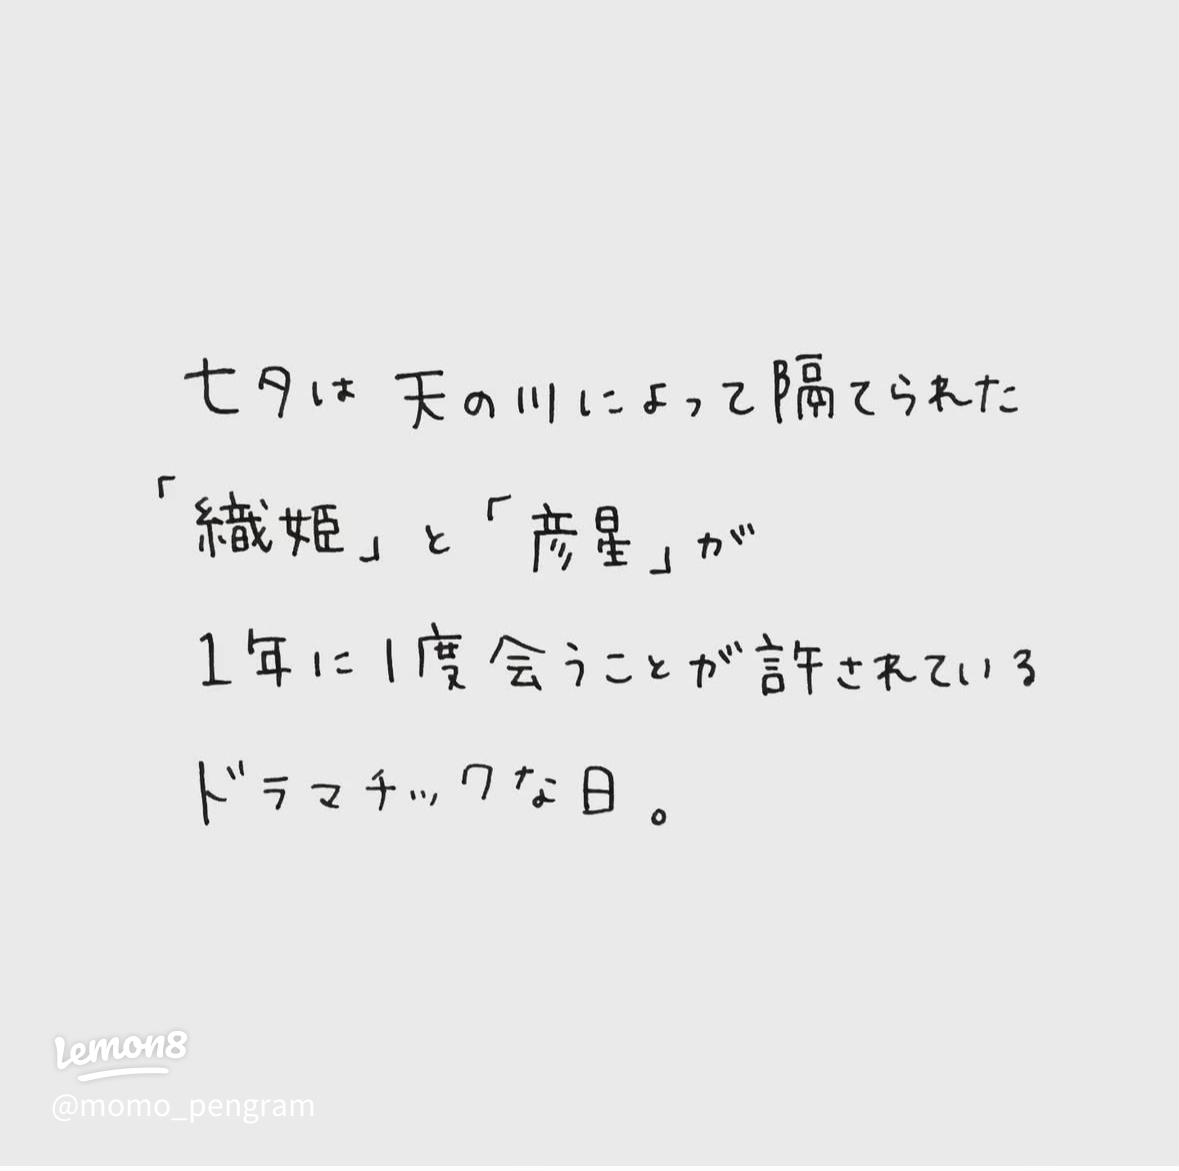 七夕は 天の川によって隔てられた
「織姫」と「彦星」が
1年に1度会うことが許されている
ドラマチックな日。
Lemon8
@momo_pengram